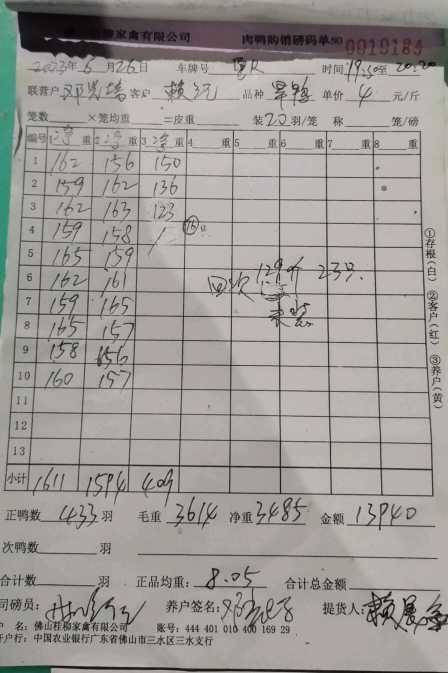 佛山桂柳家禽有限公司 肉鸭购销磅码单 NO 0010184
2023年6月26日 车牌号 时间19:50至20:20
联营户 客户 品种 单价 4 元/斤
笼数 ×笼均重 =皮重 装22羽/笼 称 笼/磅
编号 1净重 2净重 3净重 4 重 5 重 6 重 7 重 8 重
1 162 156 150
2 159 162 136
3 162 163 123
4 159 158
5 165 159
6 162 161 回收 129斤 23只
7 159 165
8 165 157
9 158 156
10 160 157
11
12
13
小计 1611 1594 409
正鸭数 433 羽 毛重 3614 净重 3485 金额 13940
次鸭数 羽
合计数 羽 正品均重: 8.05 合计总金额
司磅员: 养户签名: 提货人:
户 名: 佛山桂柳家禽有限公司 账号: 444 401 010 400 169 29
开户行: 中国农业银行广东省佛山市三水区三水支行
①存根(白) ②客户(红) ③养户(黄)